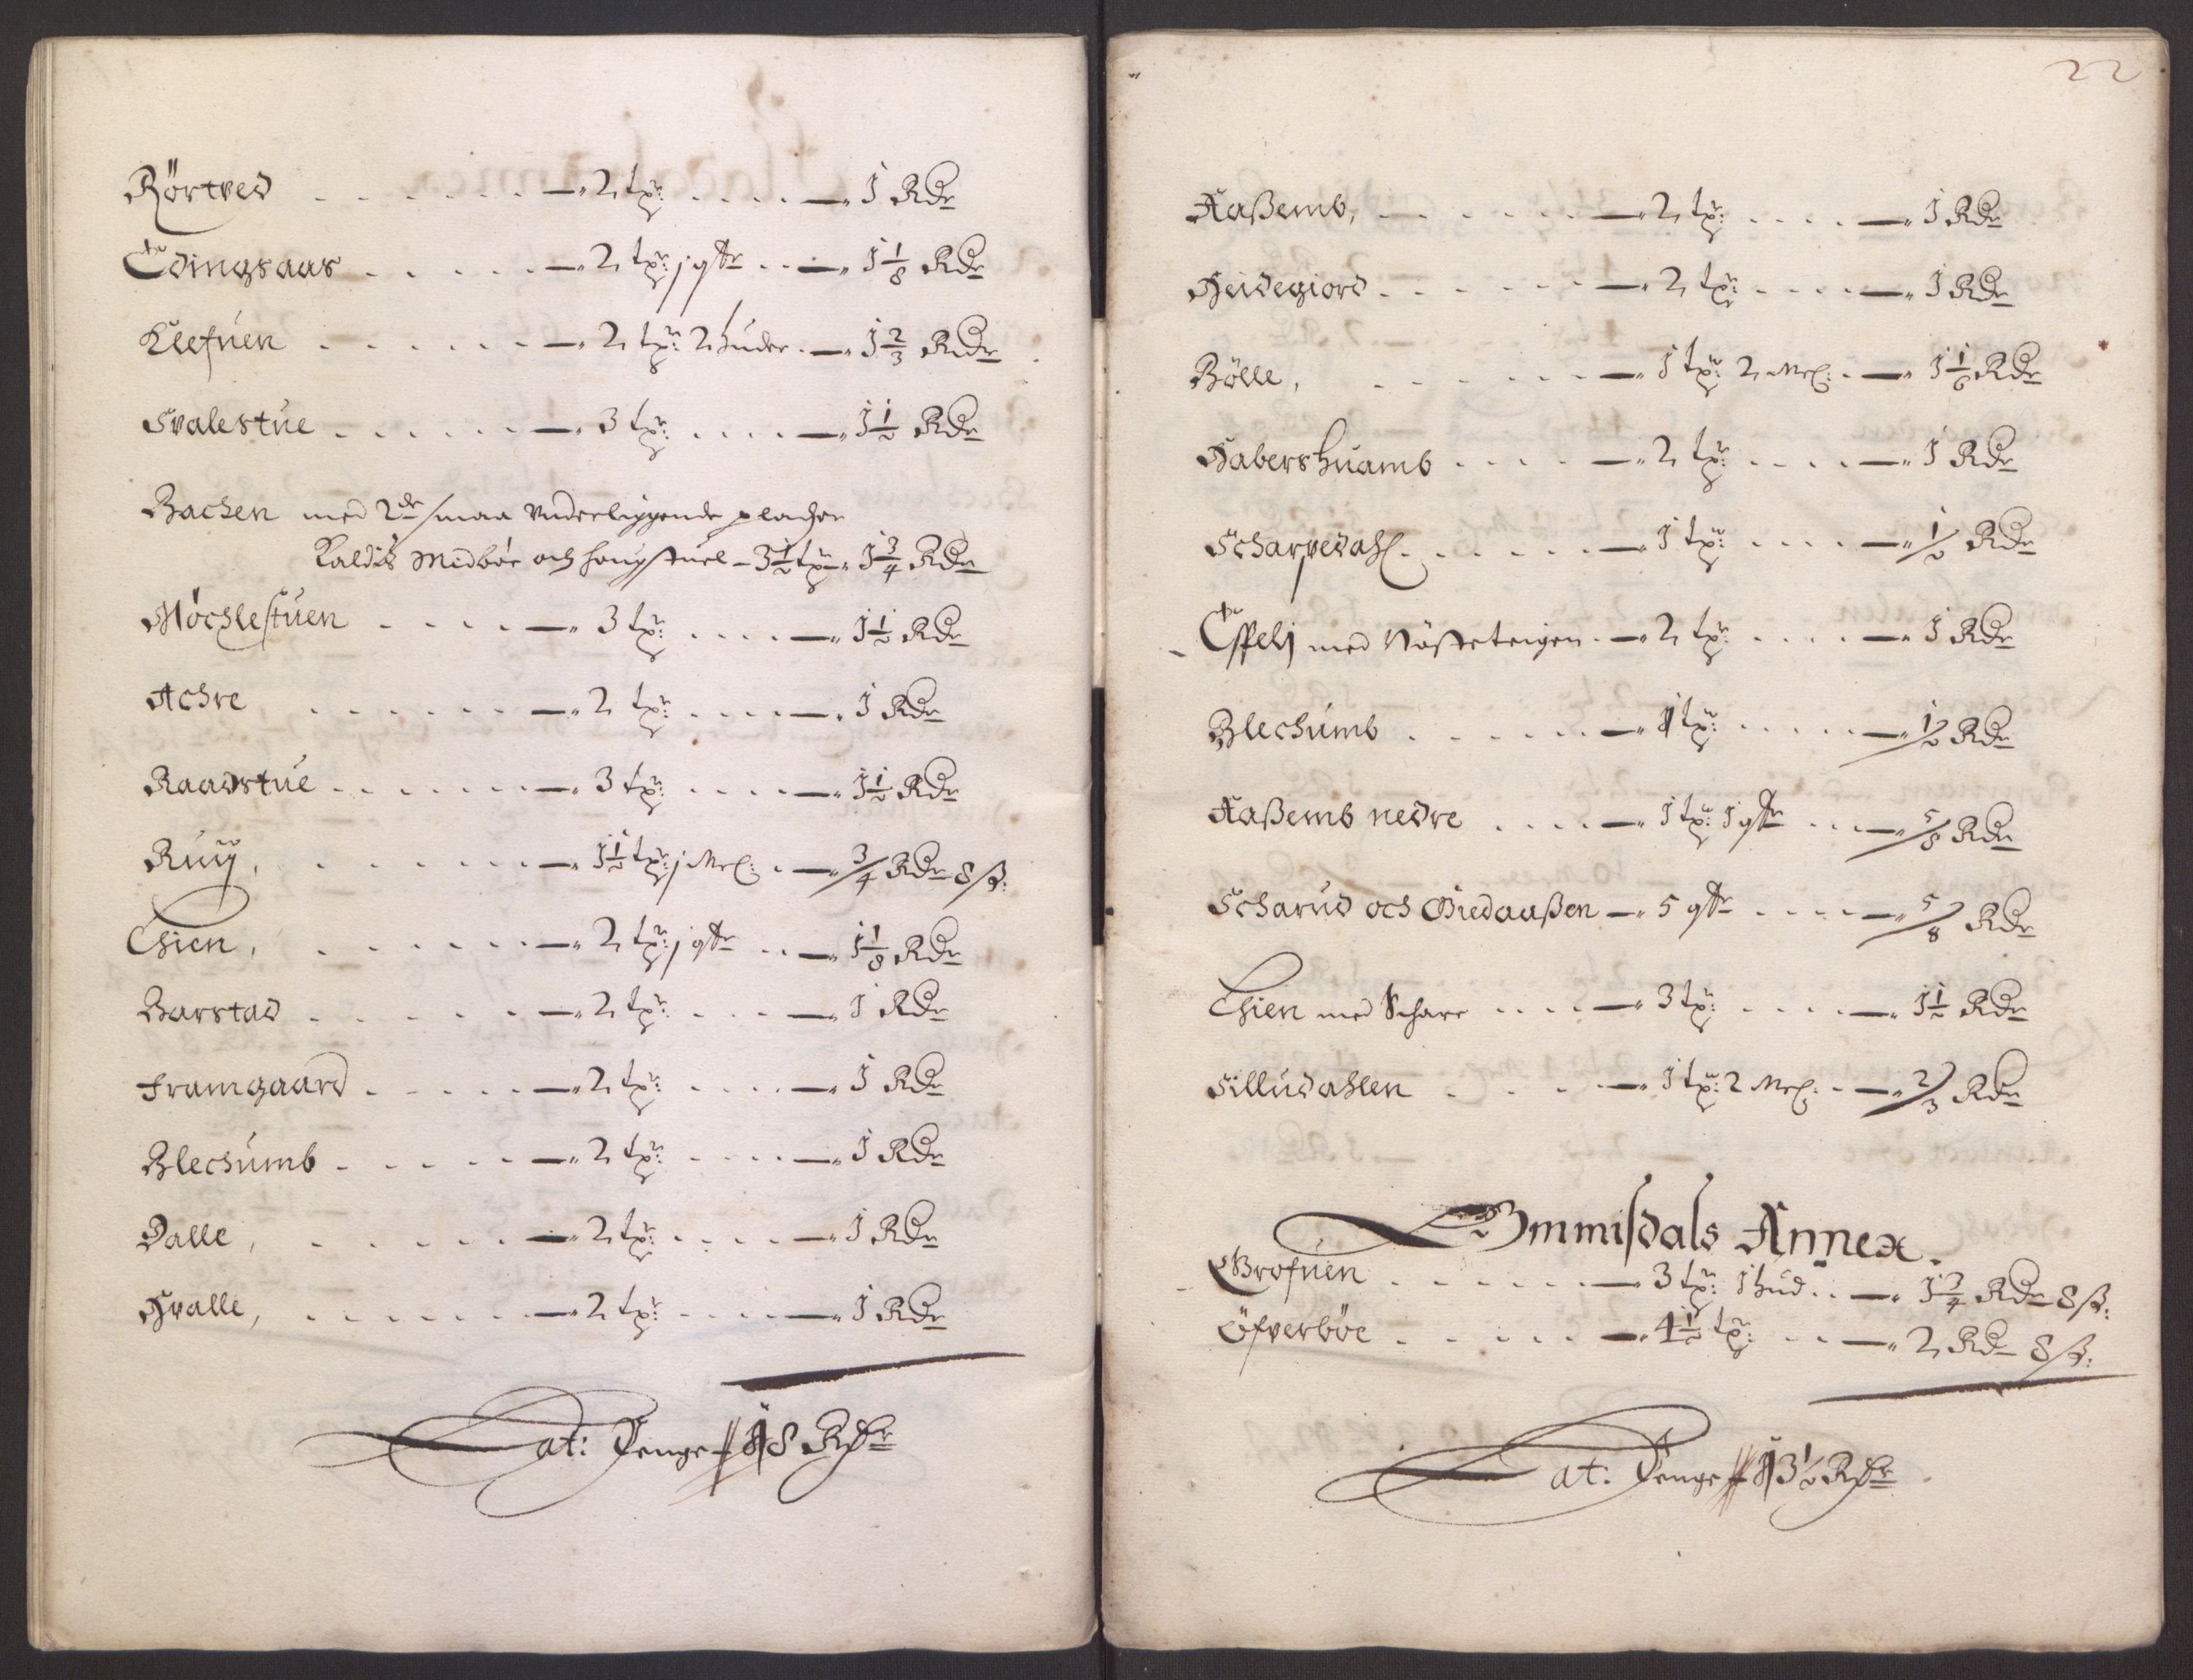 Rörtved . . . . . . — 2 tpr: . . . . — 1 Rdr
Edingsaas . . . . . — 2 tpr: j qtr . . — 1 1/8 Rdr
Klefuen . . . . . . — 2 tpr: 2 huder . — 1 2/3 Rdr
Svalestue . . . . . . — 3 tpr: . . . . — 1 1/2 Rdr
Bachen med 2de smaa underliggende pladser
Kaldis Midböe och Haugstuel - 3 1/2 tpr — 1 3/4 Rdr
Möchlestuen . . . . — 3 tpr: . . . . — 1 1/2 Rdr
Achre . . . . . . — 2 tpr: . . . . — 1 Rdr
Raadstue . . . . . . — 3 tpr: . . . . — 1 1/2 Rdr
Ruÿ, . . . . . . — 1 1/2 tpr: j Mel: . — 3/4 Rdr 8 ß:
Thien, . . . . . . — 2 tpr: j qtr . . — 1 1/8 Rdr
Barstad . . . . . — 2 tpr: . . . — 1 Rdr
Framgaard . . . . . — 2 tpr: . . . . — 1 Rdr
Blechumb . . . . . — 2 tpr: . . . . — 1 Rdr
Dalle, . . . . . . — 2 tpr: . . . . — 1 Rdr
Hvalle, . . . . . . — 2 tpr: . . . . — 1 Rdr
Lat: Penge 18 Rdr
22
Aaßemb, . . . . . . — 2 tpr: . . . . — 1 Rdr
Heidegiord . . . . . . — 2 tpr: . . . . — 1 Rdr
Bölle, . . . . . . — 1 tpr: 2 Mel: . — 1 1/6 Rdr
Habershuamb . . . . — 2 tpr: . . . . — 1 Rdr
Scharpedahl . . . . . . — 1 tpr: . . . . — 1/2 Rdr
Espelj med Nösteteigen . — 2 tpr: . . . . — 1 Rdr
Blechumb . . . . . . — 1 tpr: . . . . . — 1/2 Rdr
Aaßemb nedre . . . . — 1 tpr: 1 qtr . . . — 5/8 Rdr
Scharud och Giedaaßen — 5 qtr . . . . — 5/8 Rdr
Thien med Schare . . . . — 3 tpr: . . . . — 1 1/2 Rdr
Silludahlen . . . . — 1 tpr: 2 Mel: . . — 2/3 Rdr
Ommisdals Annex.
Grofuen . . . . . . — 3 tpr: 1 hud . . — 1 3/4 Rdr 8 ß:
Öfverböe . . . . . — 4 1/2 tpr: . . . — 2 Rdr 8 ß:
Lat: Penge 13 1/2 Rdr